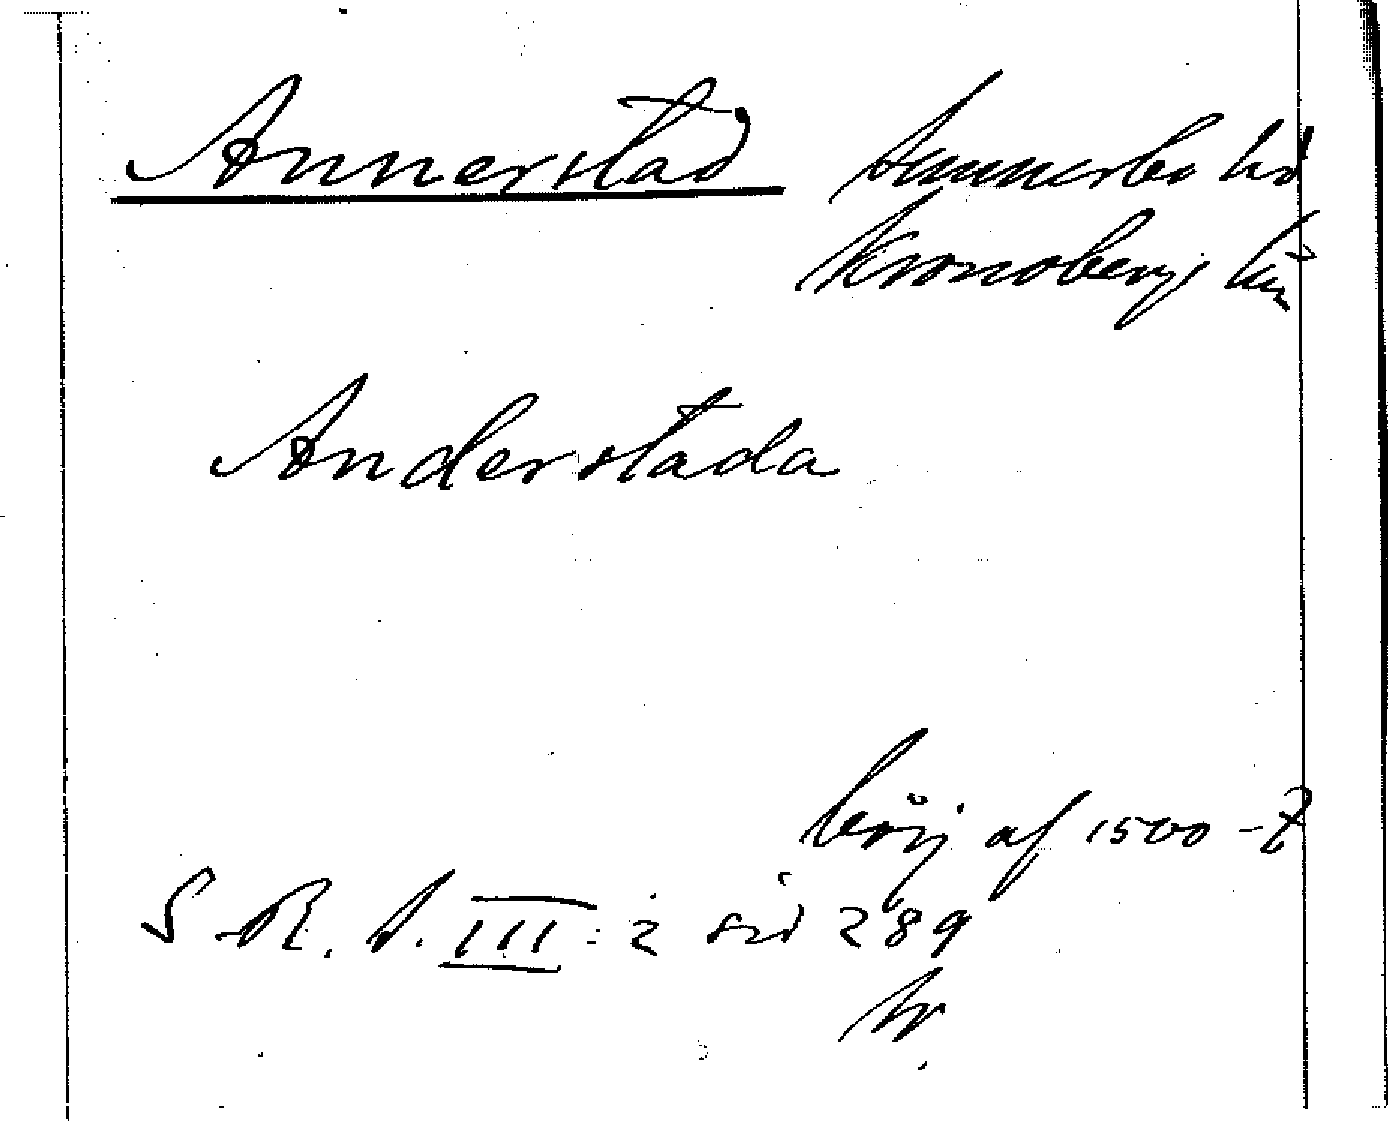 Annerstad Sunnerbo hd
Kronoberg län
Anderstada
börj af 1500-t
S. R. S. III: 2 sid 289